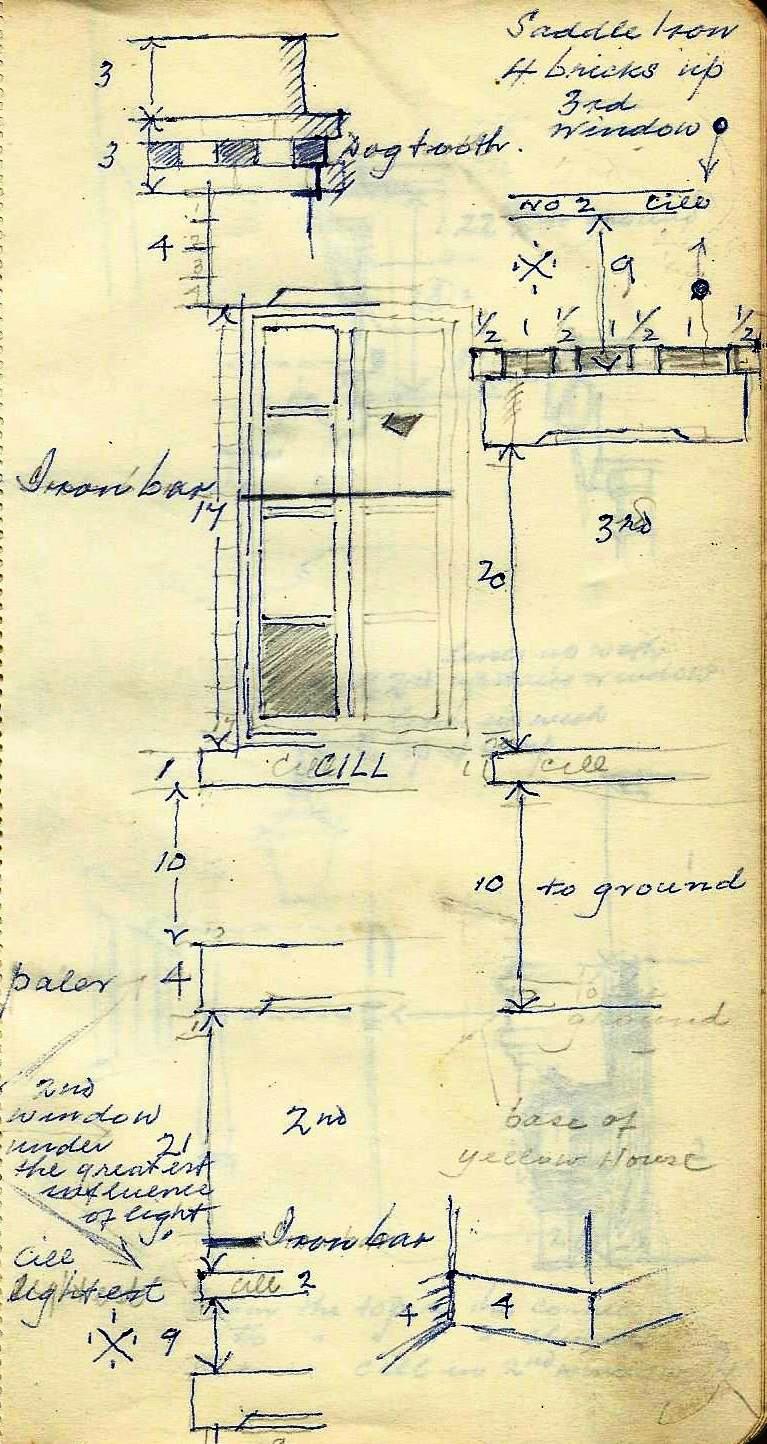 Saddle Iron
4 bricks up
3rd
window
3
3
Dogtooth.
4
NO 2 Cill
9
1/2 1 1/2 1 1/2 1 1/2
Iron bar
17
3rd
20
1
CILL
cill
10
10 to ground
paler 4
to
ground
2nd
window
under 21
the greatest
influence
of light
2nd
base of
yellow House
Iron bar
Cill
lightest
cill 2
4 4
9